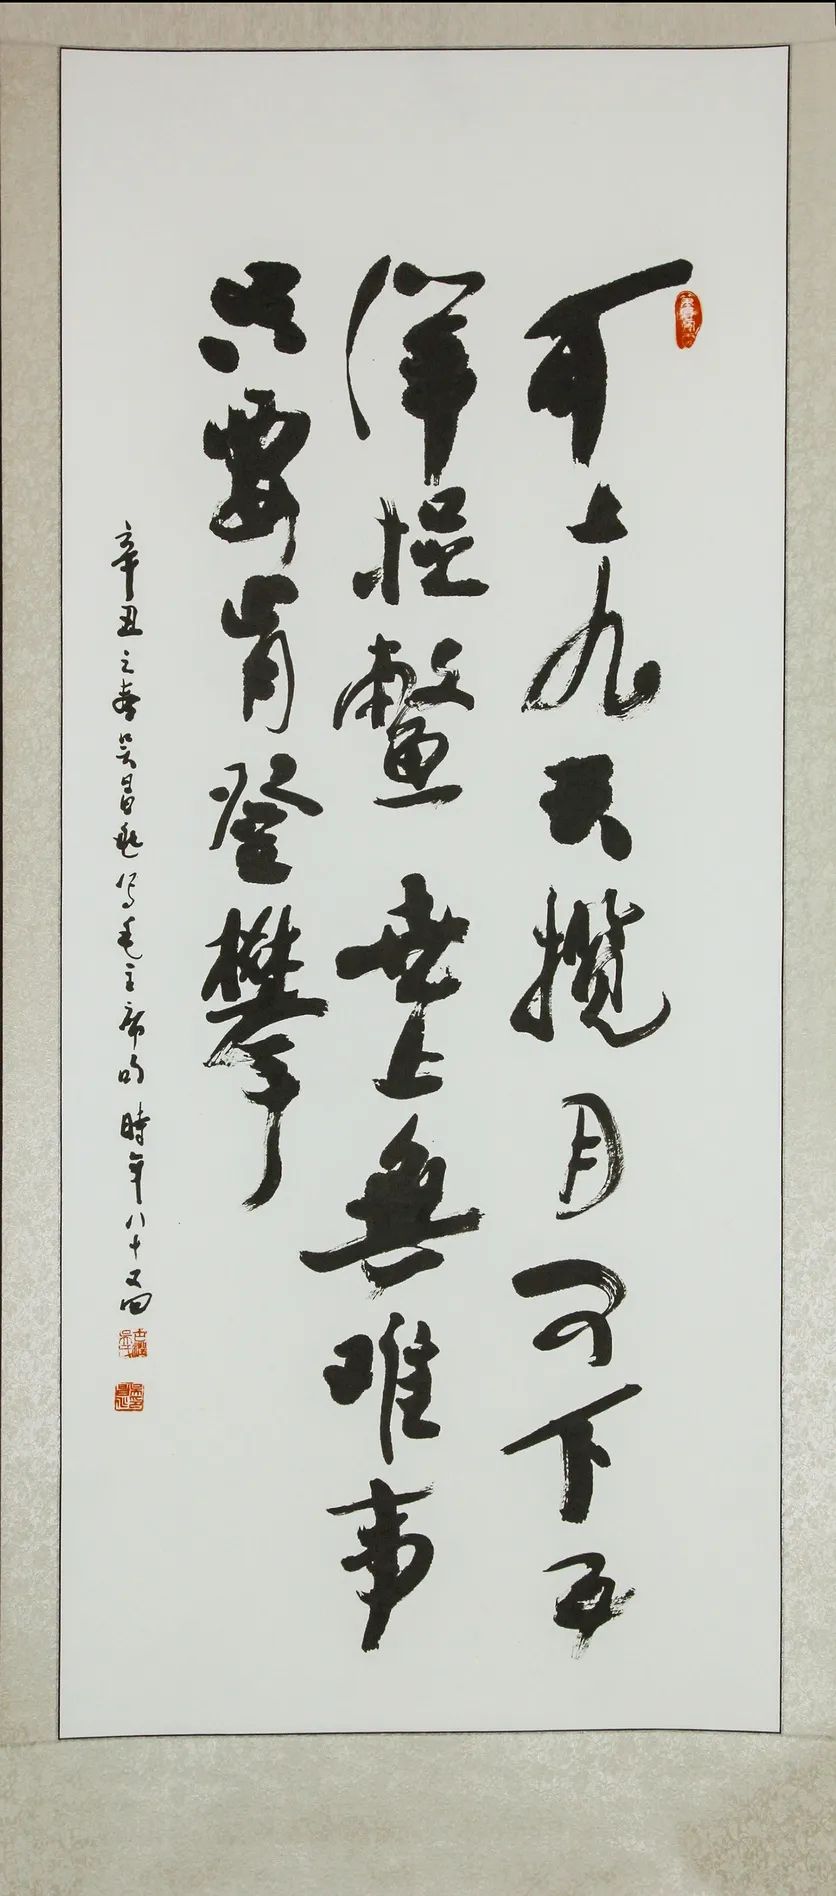 可上九天揽月可下五
洋捉鳖世上無难事
只要肯登攀
辛丑之春吴昌写毛主席句 時年八十又四